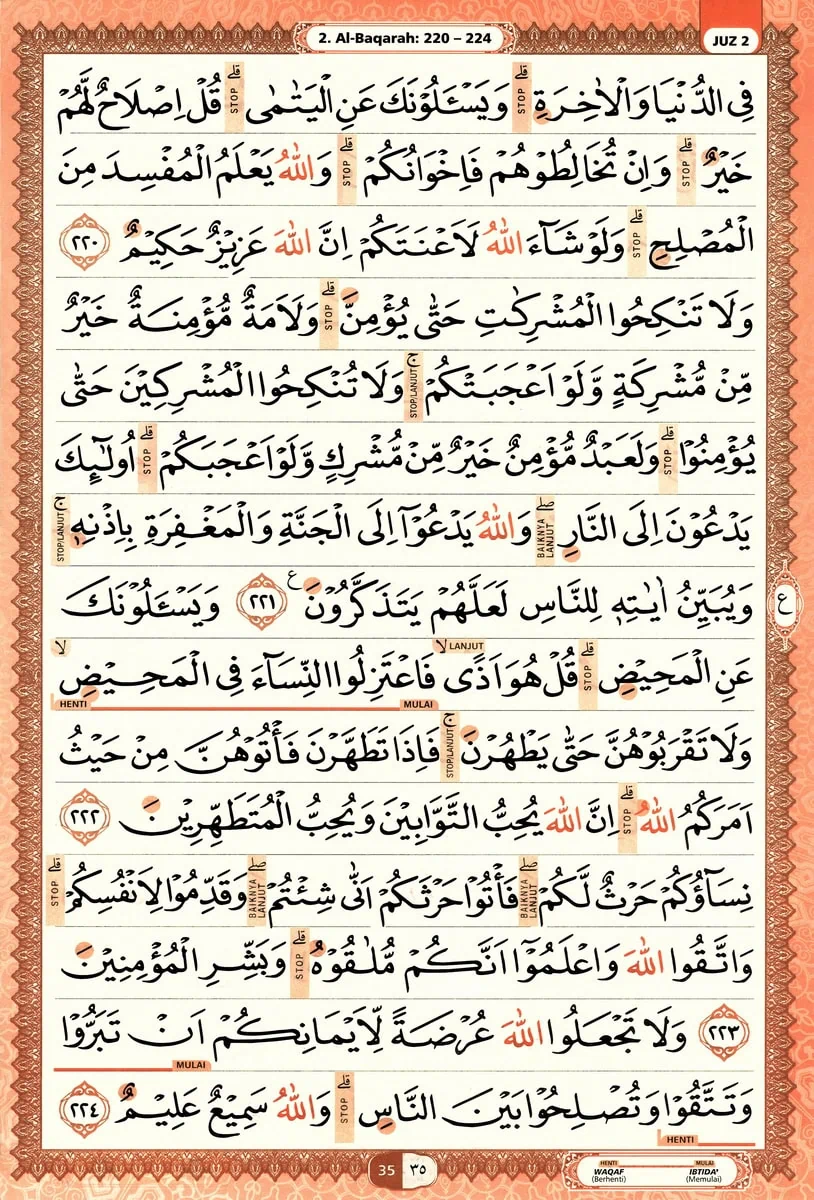 2. Al-Baqarah: 220 – 224
JUZ 2
فِى الدُّنْيَا وَالْاٰخِرَةِ ۗ قلے STOP وَيَسْـَٔلُوْنَكَ عَنِ الْيَتٰمٰى قلے STOP قُلْ اِصْلَاحٌ لَّهُمْ
خَيْرٌ قلے STOP وَاِنْ تُخَالِطُوْهُمْ فَاِخْوَانُكُمْ قلے STOP وَاللّٰهُ يَعْلَمُ الْمُفْسِدَ مِنَ
الْمُصْلِحِ قلے STOP وَلَوْ شَاۤءَ اللّٰهُ لَاَعْنَتَكُمْ اِنَّ اللّٰهَ عَزِيْزٌ حَكِيْمٌ ٢٢٠
وَلَا تَنْكِحُوا الْمُشْرِكٰتِ حَتّٰى يُؤْمِنَّ قلے STOP وَلَاَمَةٌ مُّؤْمِنَةٌ خَيْرٌ
مِّنْ مُّشْرِكَةٍ وَّلَوْ اَعْجَبَتْكُمْ ج STOP/LANJUT وَلَا تُنْكِحُوا الْمُشْرِكِيْنَ حَتّٰى
يُؤْمِنُوْا قلے STOP وَلَعَبْدٌ مُّؤْمِنٌ خَيْرٌ مِّنْ مُّشْرِكٍ وَّلَوْ اَعْجَبَكُمْ قلے STOP اُولٰۤىِٕكَ
يَدْعُوْنَ اِلَى النَّارِ صلے BAIKNYA LANJUT وَاللّٰهُ يَدْعُوْٓا اِلَى الْجَنَّةِ وَالْمَغْفِرَةِ بِاِذْنِهٖ ج STOP/LANJUT
وَيُبَيِّنُ اٰيٰتِهٖ لِلنَّاسِ لَعَلَّهُمْ يَتَذَكَّرُوْنَ ع ٢٢١ وَيَسْـَٔلُوْنَكَ
ع
عَنِ الْمَحِيْضِ قلے STOP قُلْ هُوَ اَذًى لا LANJUT فَاعْتَزِلُوا النِّسَاۤءَ فِى الْمَحِيْضِ لا
MULAI HENTI
وَلَا تَقْرَبُوْهُنَّ حَتّٰى يَطْهُرْنَ ج STOP/LANJUT فَاِذَا تَطَهَّرْنَ فَأْتُوْهُنَّ مِنْ حَيْثُ
اَمَرَكُمُ اللّٰهُ قلے STOP اِنَّ اللّٰهَ يُحِبُّ التَّوَّابِيْنَ وَيُحِبُّ الْمُتَطَهِّرِيْنَ ٢٢٢
نِسَاۤؤُكُمْ حَرْثٌ لَّكُمْ صلے BAIKNYA LANJUT فَأْتُوْا حَرْثَكُمْ اَنّٰى شِئْتُمْ صلے BAIKNYA LANJUT وَقَدِّمُوْا لِاَنْفُسِكُمْ قلے STOP
وَاتَّقُوا اللّٰهَ وَاعْلَمُوْٓا اَنَّكُمْ مُّلٰقُوْهُ قلے STOP وَبَشِّرِ الْمُؤْمِنِيْنَ
٢٢٣ وَلَا تَجْعَلُوا اللّٰهَ عُرْضَةً لِّاَيْمَانِكُمْ اَنْ تَبَرُّوْا
MULAI
وَتَتَّقُوْا وَتُصْلِحُوْا بَيْنَ النَّاسِ قلے STOP وَاللّٰهُ سَمِيْعٌ عَلِيْمٌ ٢٢٤
HENTI
35 ٣٥
HENTI MULAI
WAQAF IBTIDA'
(Berhenti) (Memulai)